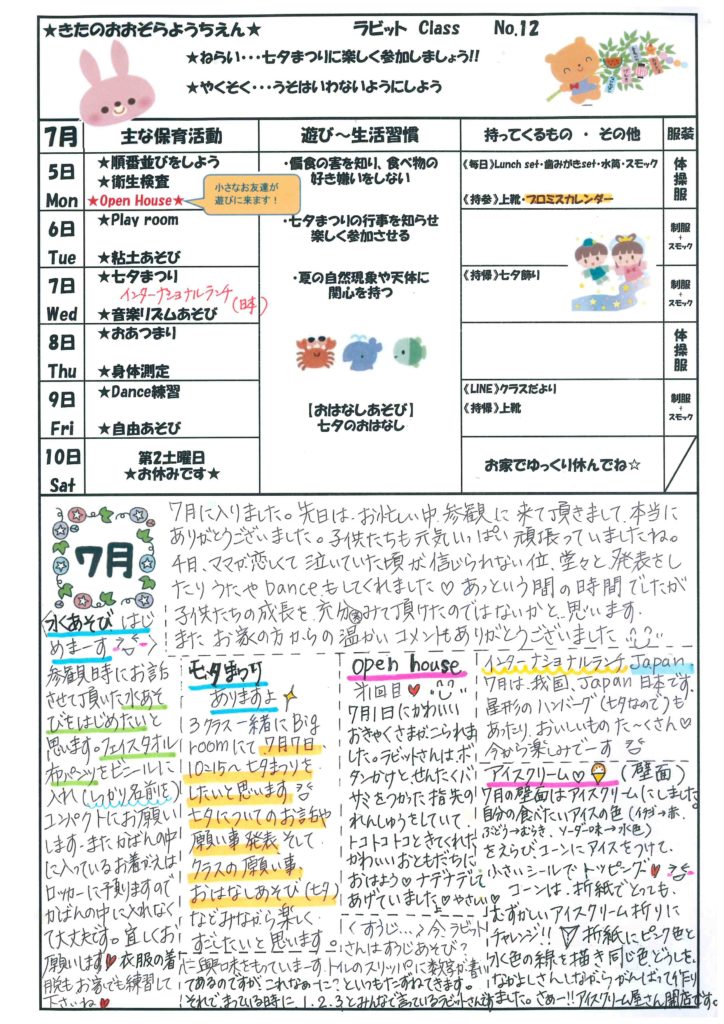 ★きたのおおぞらようちえん★　ラビット Class　No.12
★ねらい・・・七夕まつりに楽しく参加しましょう!!
★やくそく・・・うそはいわないようにしよう
7月　主な保育活動　遊び～生活習慣　持ってくるもの ・ その他　服装
5日
Mon
★順番並びをしよう
★衛生検査
★Open House★
小さなお友達が
遊びに来ます!
・偏食の害を知り、食べ物の
好き嫌いをしない
《毎日》Lunch set・歯みがきset・水筒・スモック
《持参》上靴・プロミスカレンダー
体操服
6日
Tue
★Play room
★粘土あそび
・七夕まつりの行事を知らせ
楽しく参加させる
制服
+
スモック
7日
Wed
★七夕まつり
インターナショナルランチ
(日本)
★音楽リズムあそび
・夏の自然現象や天体に
関心を持つ
《持帰》七夕飾り
制服
+
スモック
8日
Thu
★おあつまり
★身体測定
体操服
9日
Fri
★Dance練習
★自由あそび
【おはなしあそび】
七夕のおはなし
《LINE》クラスだより
《持帰》上靴
制服
+
スモック
10日
Sat
第2土曜日
★お休みです★
お家でゆっくり休んでね☆
7月
7月に入りました。先日は、お忙しい中、参観に来て頂きまして、本当に
ありがとうございました。子供たちも元気いっぱい頑張っていましたね。
4月、ママが恋しくて泣いていた頃が信じられない位、堂々と発表をし
たりうたやDanceもしてくれました♡ あっという間の時間でしたが
子供たちの成長を充分みて頂けたのではないかと思います。
また お家の方からの温かいコメントもありがとうございました
〈水あそび はじ
めまーす〉
参観時にお話
させて頂いた水あそ
びをはじめたいと
思います。フェイスタオル
・パンツをビニールに
入れ(しっかり名前を)
コンパクトにお願い
します。またかばんの中
に入っているお着がえは
ロッカーに予りますので
かばんの中に入れなく
て大丈夫です。宜しくお
願いします♥衣服の着
脱もお家でも練習して
下さいね♥
七夕まつり
ありますよ
3クラス一緒にBig
roomにて 7月7日、
10:15～七夕まつりを
したいと思います
七夕についてのお話や
願い事発表そして
クラスの願い事、
おはなしあそび(七夕)
などみながら楽しく
すごしたいと思います。
open house
第1回目♥
7月1日にかわいい
おきゃくさまがこられま
した。ラビットさんは、ボ
タンかけと、せんたくバ
サミをつかった指先の
れんしゅうをしていて
トコトコトコときてくれた
かわいいおともだちに
おはよう♡ナデナデして
あげていました♥やさしい♡
インターナショナルランチ Japan
7月は、我国、Japan 日本です。
星形のハンバーグ(七夕なのでっ)も
あったり、おいしいものた～くさん♡
今から楽しみでーす
アイスクリーム♡ (壁面)
7月の壁面はアイスクリームにしました。
自分の食べたいアイスの色(イチゴ→赤、
ぶどう→むらさき、ソーダー味→水色)
をえらび、コーンにアイスをつけて、
小さいシールでトッピング♥
コーンは、折紙でとっても、
むずかしいアイスクリーム折りに
チャレンジ!! ▽ 折紙にピンク色と
水色の線を描き同じ色どうしを、
なかよしさんしながらがんばって作り
ました。さぁー!!アイスクリーム屋さん開店です。
〈すうじ…〉今、ラビット
さんはすうじあそび?
に興味をもっています。トイレのスリッパに数字が書い
てあるのですが これなぁーに?といつもたずねてきます。
それでまっている時に、1.2.3とみんなで言っているラビットさんです